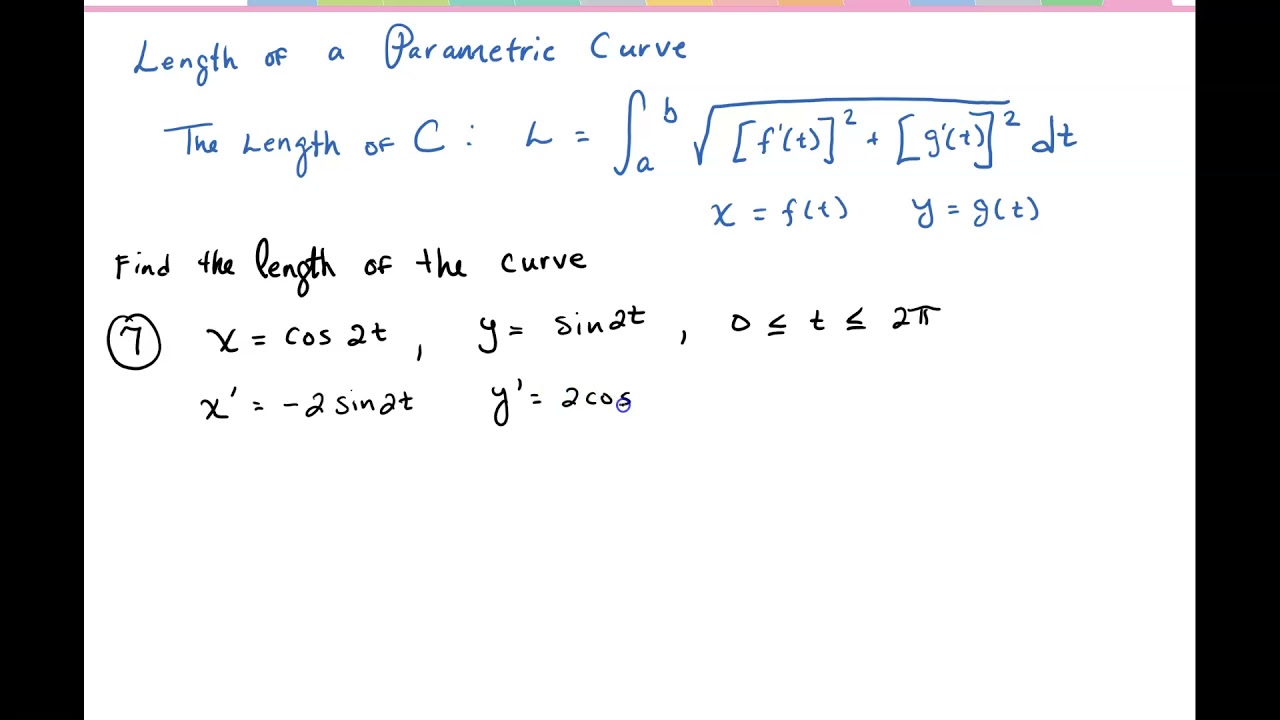 Length of a Parametric Curve
The Length of C : L = ∫_a^b √([f'(t)]² + [g'(t)]²) dt
x = f(t) y = g(t)
Find the length of the curve
⑦ x = cos 2t , y = sin2t , 0 ≤ t ≤ 2π
x' = -2 sin2t y' = 2cos